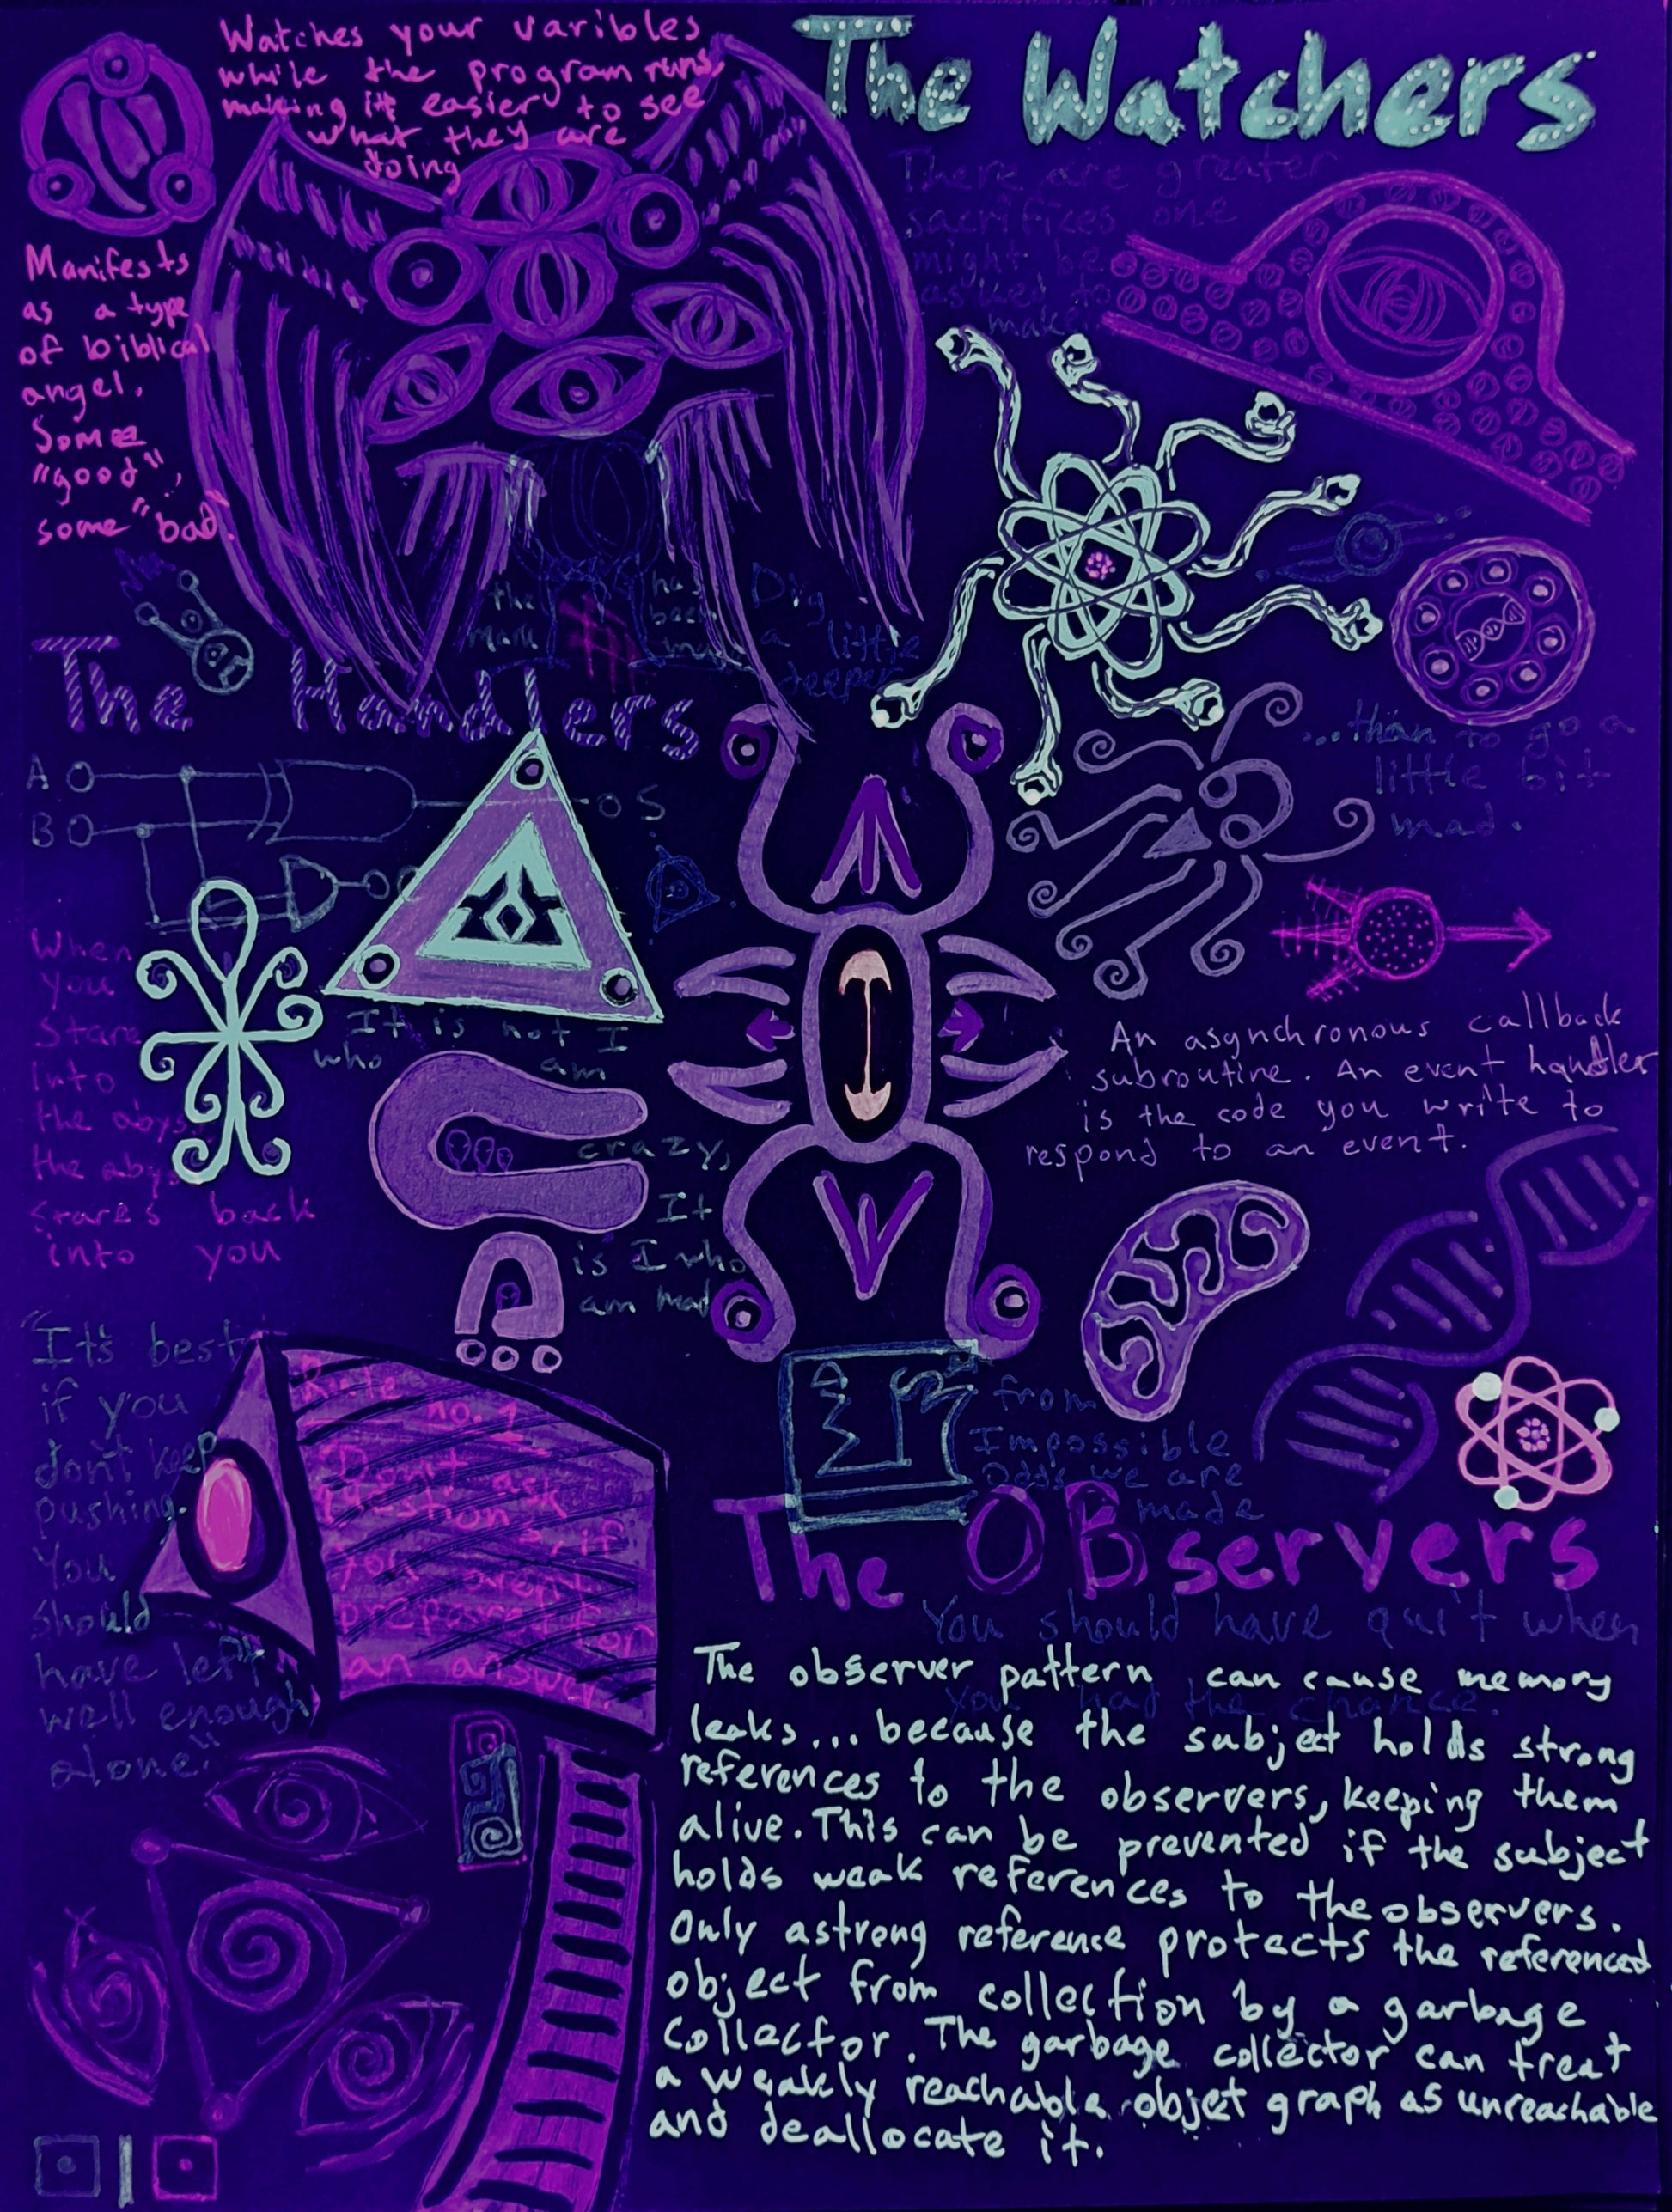 Watches your varibles
while the program runs,
making it easier to see
what they are
doing
The Watchers
Manifests
as a type
of biblical
angel.
Some
"good",
some "bad".
There are greater
sacrifices one
might be
asked to
make
...than to go a
little bit
mad.
the has
been
Dig
a little
deeper
The Handlers
A
B
S
When
you
stare
into
the abys
the abys
stares back
into you
It is not I
who am
crazy,
It
is I who
am mad
An asynchronous callback
subroutine. An event handler
is the code you write to
respond to an event.
"It's best
if you
don't keep
pushing.
You
should
have left
well enough
alone."
Rule
no. 1
Don't ask
questions if
you aren't
prepared for
an answer.
from
Impossible
Odds we are
made
The OBservers
You should have quit when
you had the chance.
The observer pattern can cause memory
leaks... because the subject holds strong
references to the observers, keeping them
alive. This can be prevented if the subject
holds weak references to the observers.
Only a strong reference protects the referenced
object from collection by a garbage
collector. The garbage collector can treat
a weakly reachable objet graph as unreachable
and deallocate it.